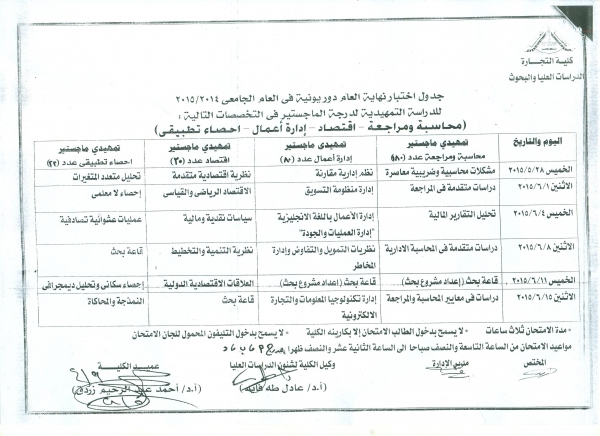 كلية التجارة
الدراسات العليا والبحوث
جدول اختبار نهاية العام دور يونية فى العام الجامعى ٢٠١٥/٢٠١٤
للدراسة التمهيدية لدرجة الماجستير فى التخصصات التالية :
(محاسبة ومراجعة - اقتصاد - إدارة أعمال - احصاء تطبيقى)
اليوم والتاريخ | تمهيدي ماجستير محاسبة ومراجعة عدد (٨٠) | تمهيدي ماجستير إدارة أعمال عدد (٨٠) | تمهيدي ماجستير اقتصاد عدد (٣٠) | تمهيدي ماجستير احصاء تطبيقى عدد (٢٢)
الخميس ٢٠١٥/٥/٢٨ | مشكلات محاسبية وضريبية معاصرة | نظم إدارية مقارنة | نظرية اقتصادية متقدمة | تحليل متعدد المتغيرات
الاثنين ٢٠١٥/٦/١ | دراسات متقدمة فى المراجعة | إدارة منظومة التسويق | الاقتصاد الرياضى والقياسى | إحصاء لا معلمى
الخميس ٢٠١٥/٦/٤ | تحليل التقارير المالية | إدارة الأعمال باللغة الانجليزية "إدارة العمليات والجودة" | سياسات نقدية ومالية | عمليات عشوائية تصادفية
الاثنين ٢٠١٥/٦/٨ | دراسات متقدمة فى المحاسبة الادارية | نظريات التمويل والتفاوض وإدارة المخاطر | نظرية التنمية والتخطيط | قاعة بحث
الخميس ٢٠١٥/٦/١١ | قاعة بحث (إعداد مشروع بحث) | قاعة بحث (إعداد مشروع بحث) | العلاقات الاقتصادية الدولية | إحصاء سكانى وتحليل ديمجرافى
الاثنين ٢٠١٥/٦/١٥ | دراسات فى معايير المحاسبة والمراجعة | إدارة تكنولوجيا المعلومات والتجارة الالكترونية | قاعة بحث | النمذجة والمحاكاة
• مدة الامتحان ثلاث ساعات • لا يسمح بدخول الطالب الامتحان إلا بكارنيه الكلية • لا يسمح بدخول التليفون المحمول للجان الامتحان
مواعيد الامتحان من الساعة التاسعة والنصف صباحا الى الساعة الثانية عشر والنصف ظهرا
المختص مدير الادارة وكيل الكلية لشئون الدراسات العليا عميد الكلية
(أ.د/ عادل طه فايد) (أ.د/ أحمد عبد الرحيم زردق)